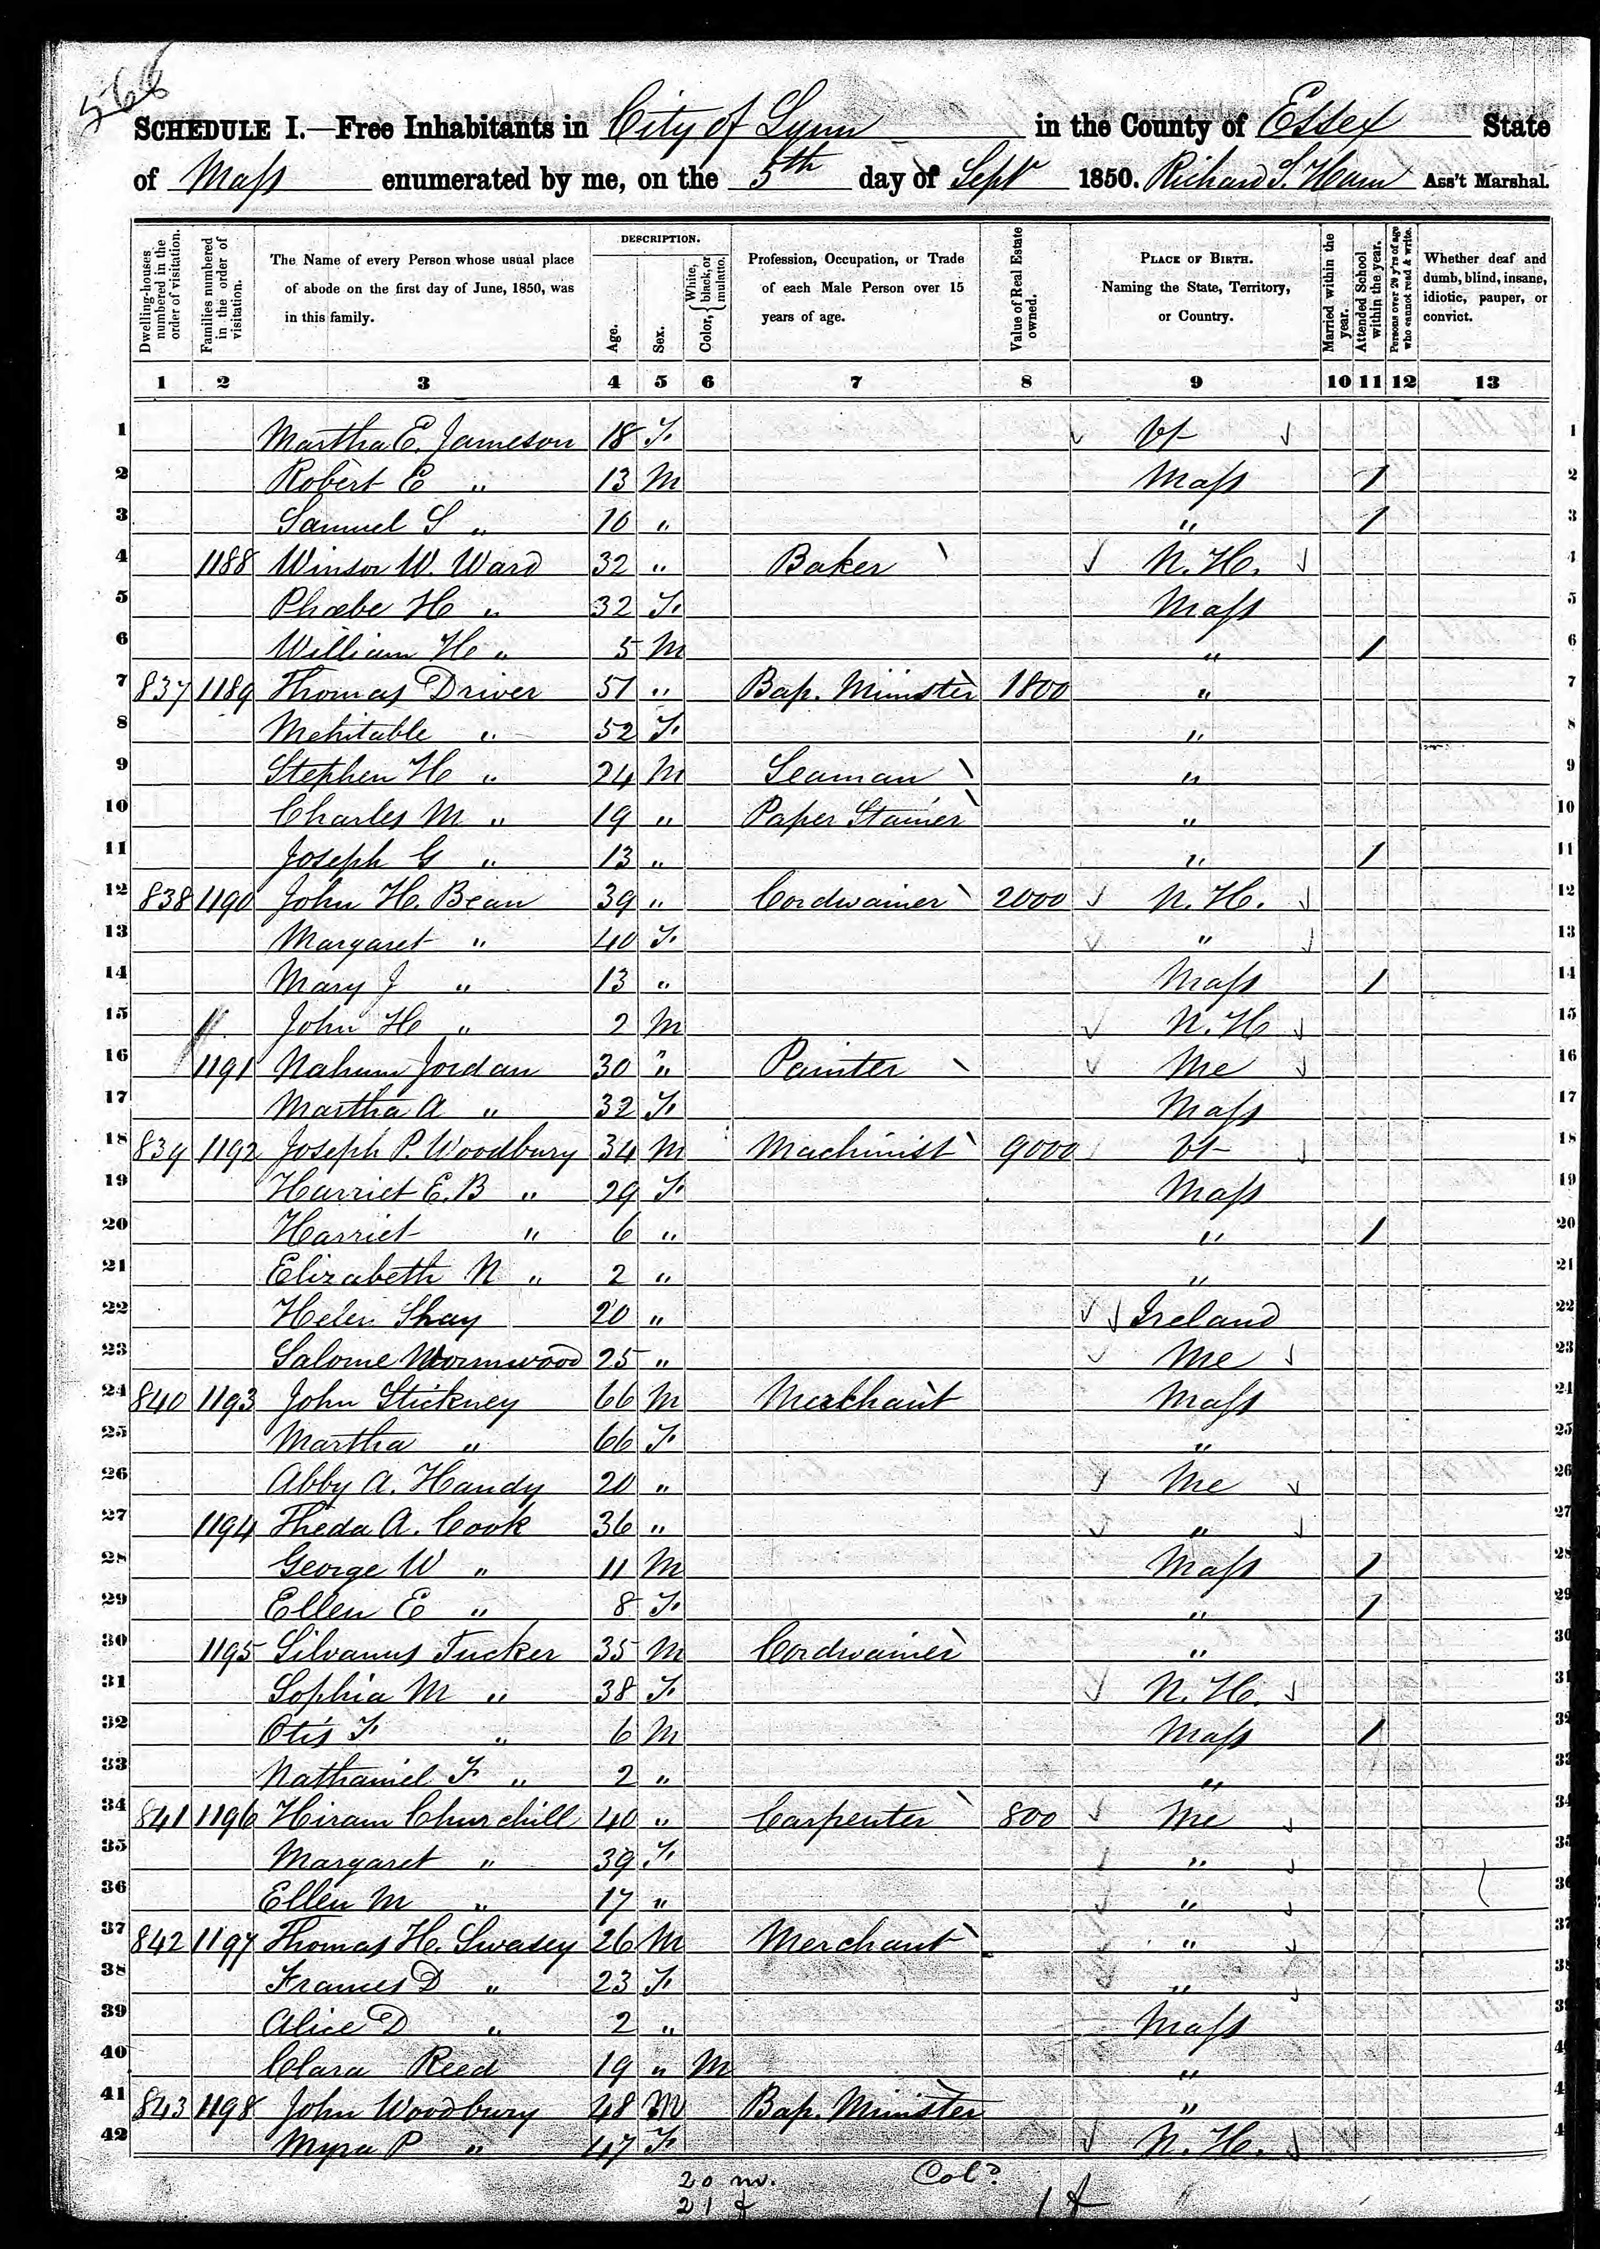 566
SCHEDULE I.—Free Inhabitants in City of Lynn in the County of Essex State
of Mass enumerated by me, on the 5th day of Sept 1850. Richard S. Ham Ass't Marshal.
Dwelling-houses numbered in the order of visitation.
Families numbered in the order of visitation.
The Name of every Person whose usual place of abode on the first day of June, 1850, was in this family.
DESCRIPTION.
Age.
Sex.
Color, { White, black, or mulatto.
Profession, Occupation, or Trade of each Male Person over 15 years of age.
Value of Real Estate owned.
PLACE OF BIRTH. Naming the State, Territory, or Country.
Married within the year.
Attended School within the year.
Persons over 20 y'rs of age who cannot read & write.
Whether deaf and dumb, blind, insane, idiotic, pauper, or convict.
1 2 3 4 5 6 7 8 9 10 11 12 13
1 Martha E. Jameson 18 F. Vt 1
2 Robert E " 13 M Mass / 2
3 Samuel S " 10 " " / 3
4 1188 Winsor W. Ward 32 " Baker N. H. 4
5 Phœbe H " 32 F. Mass 5
6 William H " 5 M " / 6
7 837 1189 Thomas Driver 51 " Bap. Minister 1800 " 7
8 Mehitable " 52 F. " 8
9 Stephen H " 24 M Seaman " 9
10 Charles M " 19 " Paper Stainer " 10
11 Joseph G " 13 " " / 11
12 838 1190 John H. Bean 39 " Cordwainer 2000 N. H. 12
13 Margaret " 40 F. " 13
14 Mary J " 13 " Mass / 14
15 John H " 2 M N. H 15
16 1191 Nahum Jordan 30 " Painter Me 16
17 Martha A " 32 F. Mass 17
18 839 1192 Joseph P. Woodbury 34 M Machinist 9000 Vt 18
19 Harriet E. B " 29 F. Mass 19
20 Harriet " 6 " " / 20
21 Elizabeth N " 2 " " 21
22 Helen Shay 20 " Ireland 22
23 Salome Wormwood 25 " Me 23
24 840 1193 John Stickney 66 M Merchant Mass 24
25 Martha " 66 F. " 25
26 Abby A. Handy 20 " Me 26
27 1194 Theda A. Cook 36 " " 27
28 George W " 11 M Mass / 28
29 Ellen E " 8 F. " / 29
30 1195 Silvanus Tucker 35 M Cordwainer " 30
31 Sophia M " 38 F. N. H. 31
32 Otis F " 6 M Mass / 32
33 Nathaniel F " 2 " " 33
34 841 1196 Hiram Churchill 40 " Carpenter 800 Me 34
35 Margaret " 39 F. " 35
36 Ellen M " 17 " " 36
37 842 1197 Thomas H. Swasey 26 M Merchant " 37
38 Frances D " 23 F. " 38
39 Alice D " 2 " Mass 39
40 Clara Reed 19 " M " 4
41 843 1198 John Woodbury 48 M Bap. Minister " 4
42 Myra P " 47 F. N. H. 4
20 m. Col^d
21 f 1 f